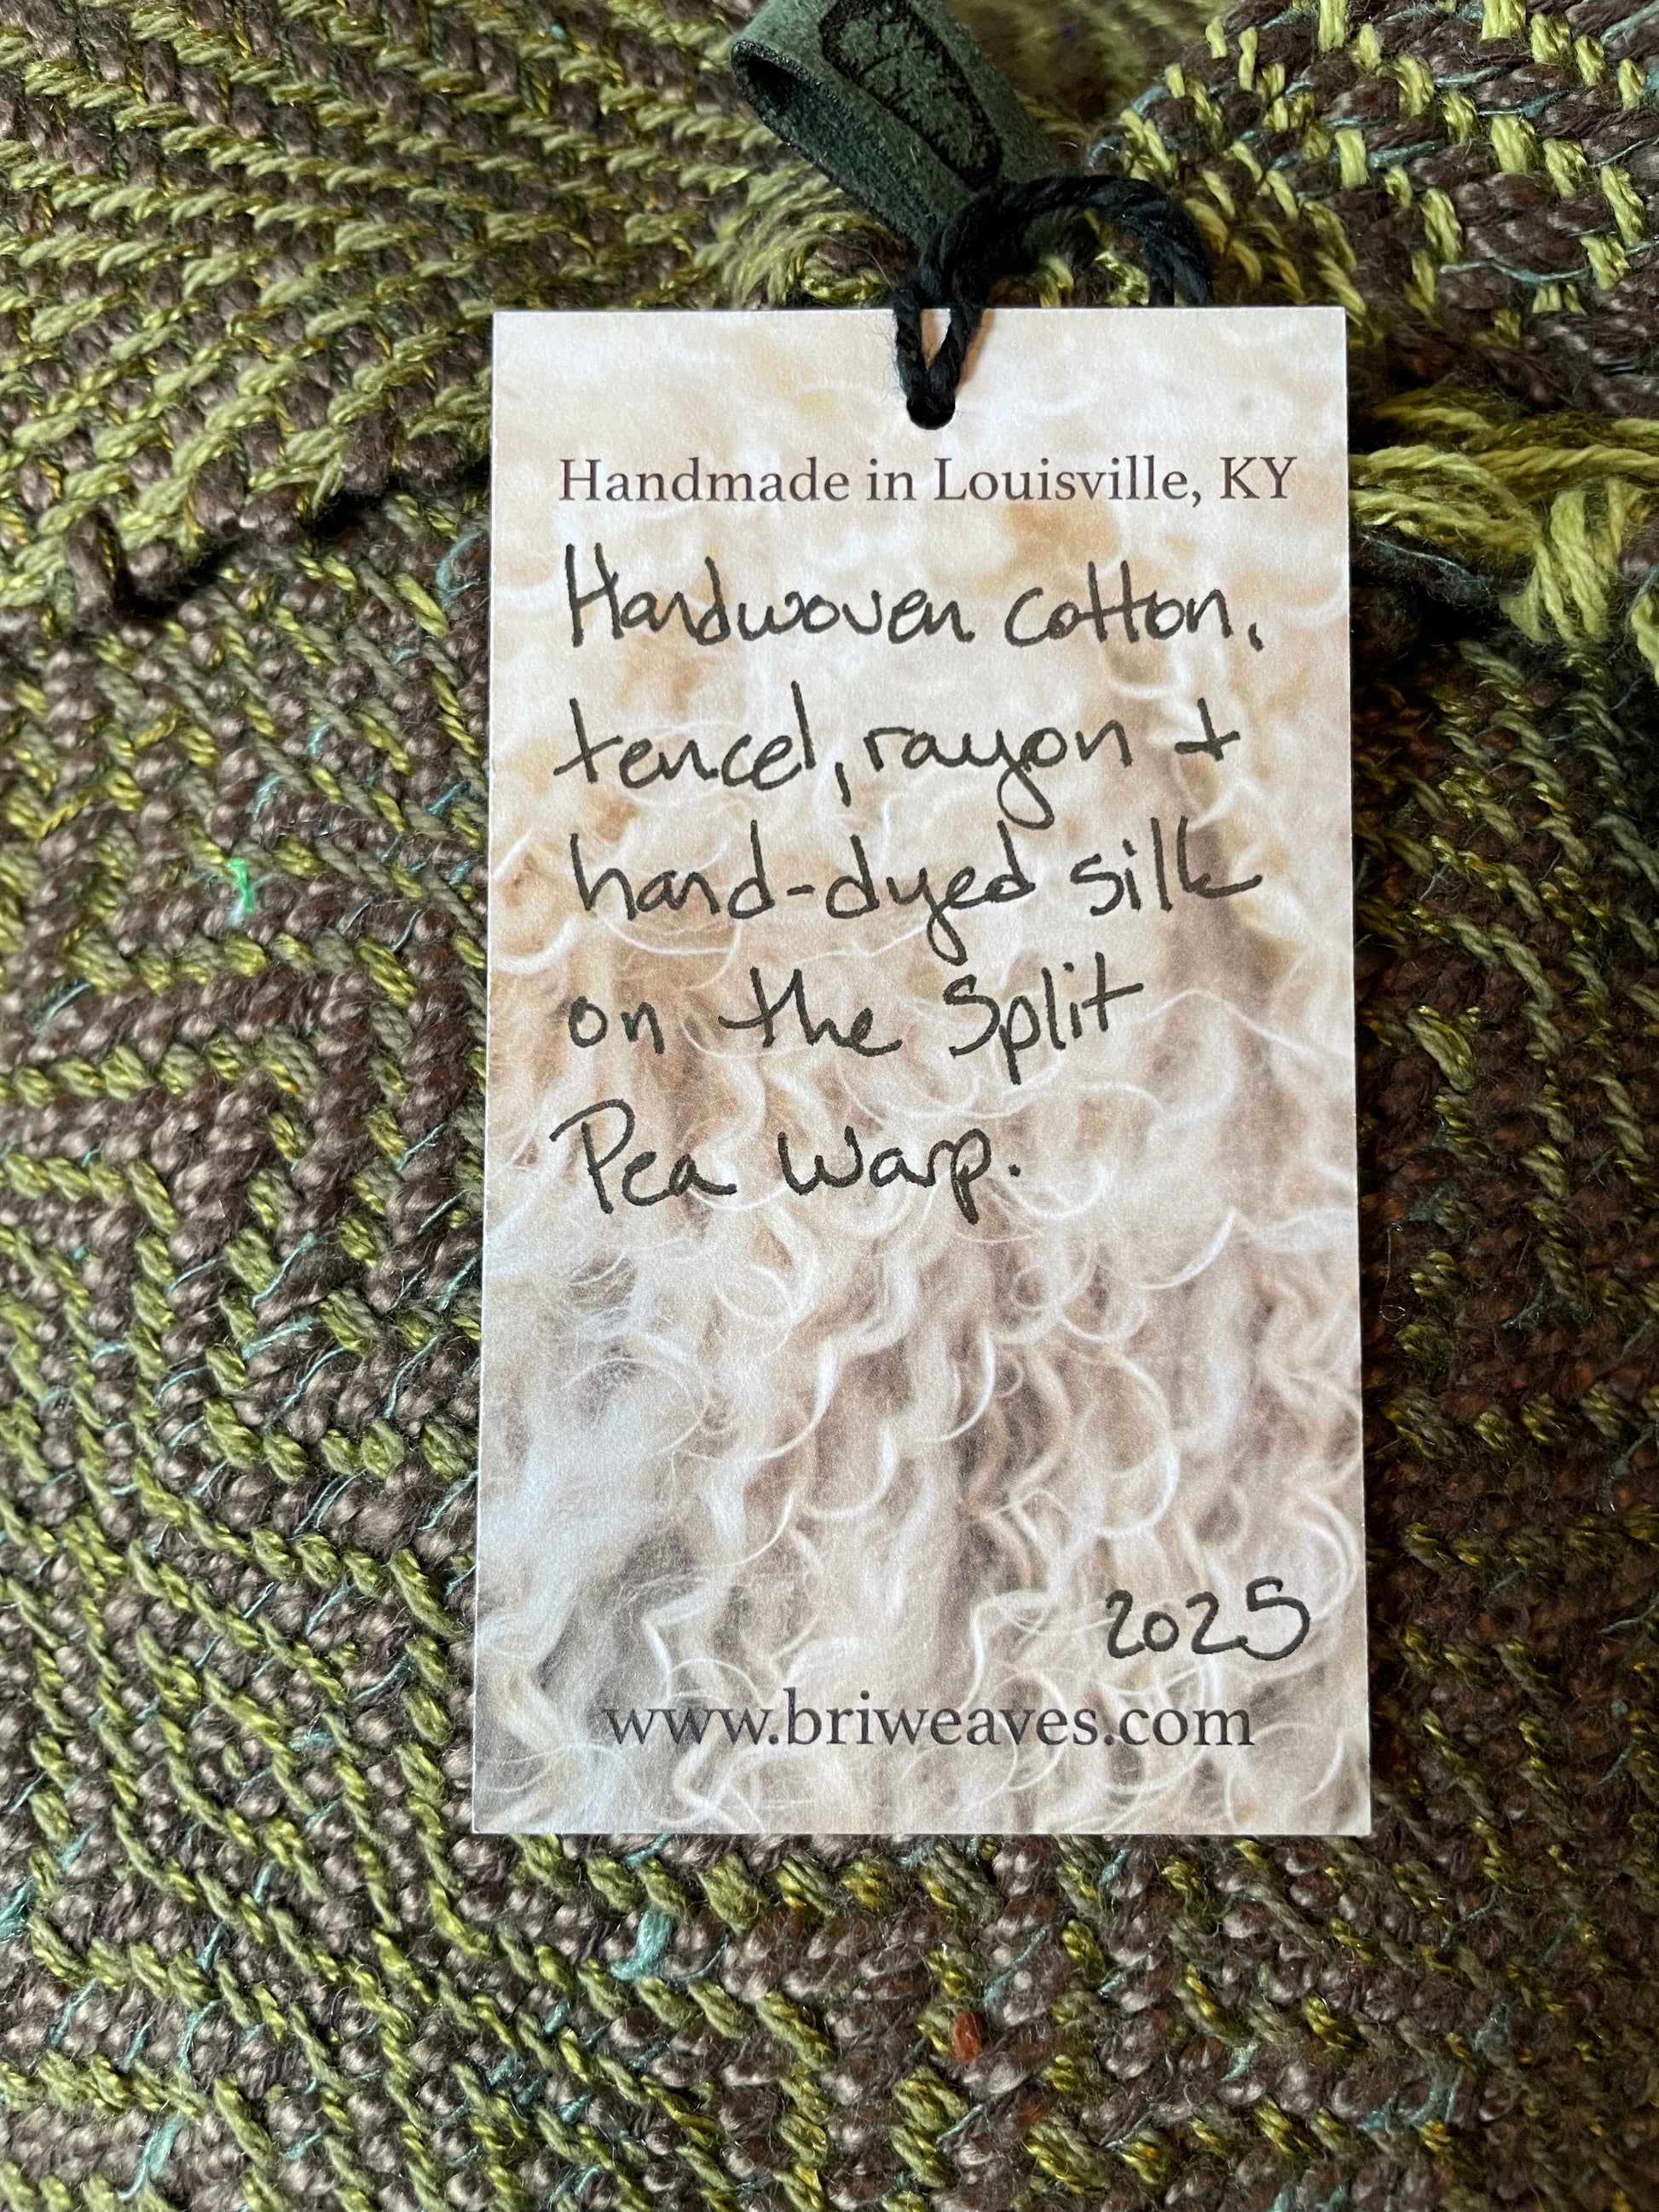 Handmade in Louisville, KY
Handwoven cotton,
tencel, rayon +
hand-dyed silk
on the Split
Pea Warp.
2025
www.briweaves.com